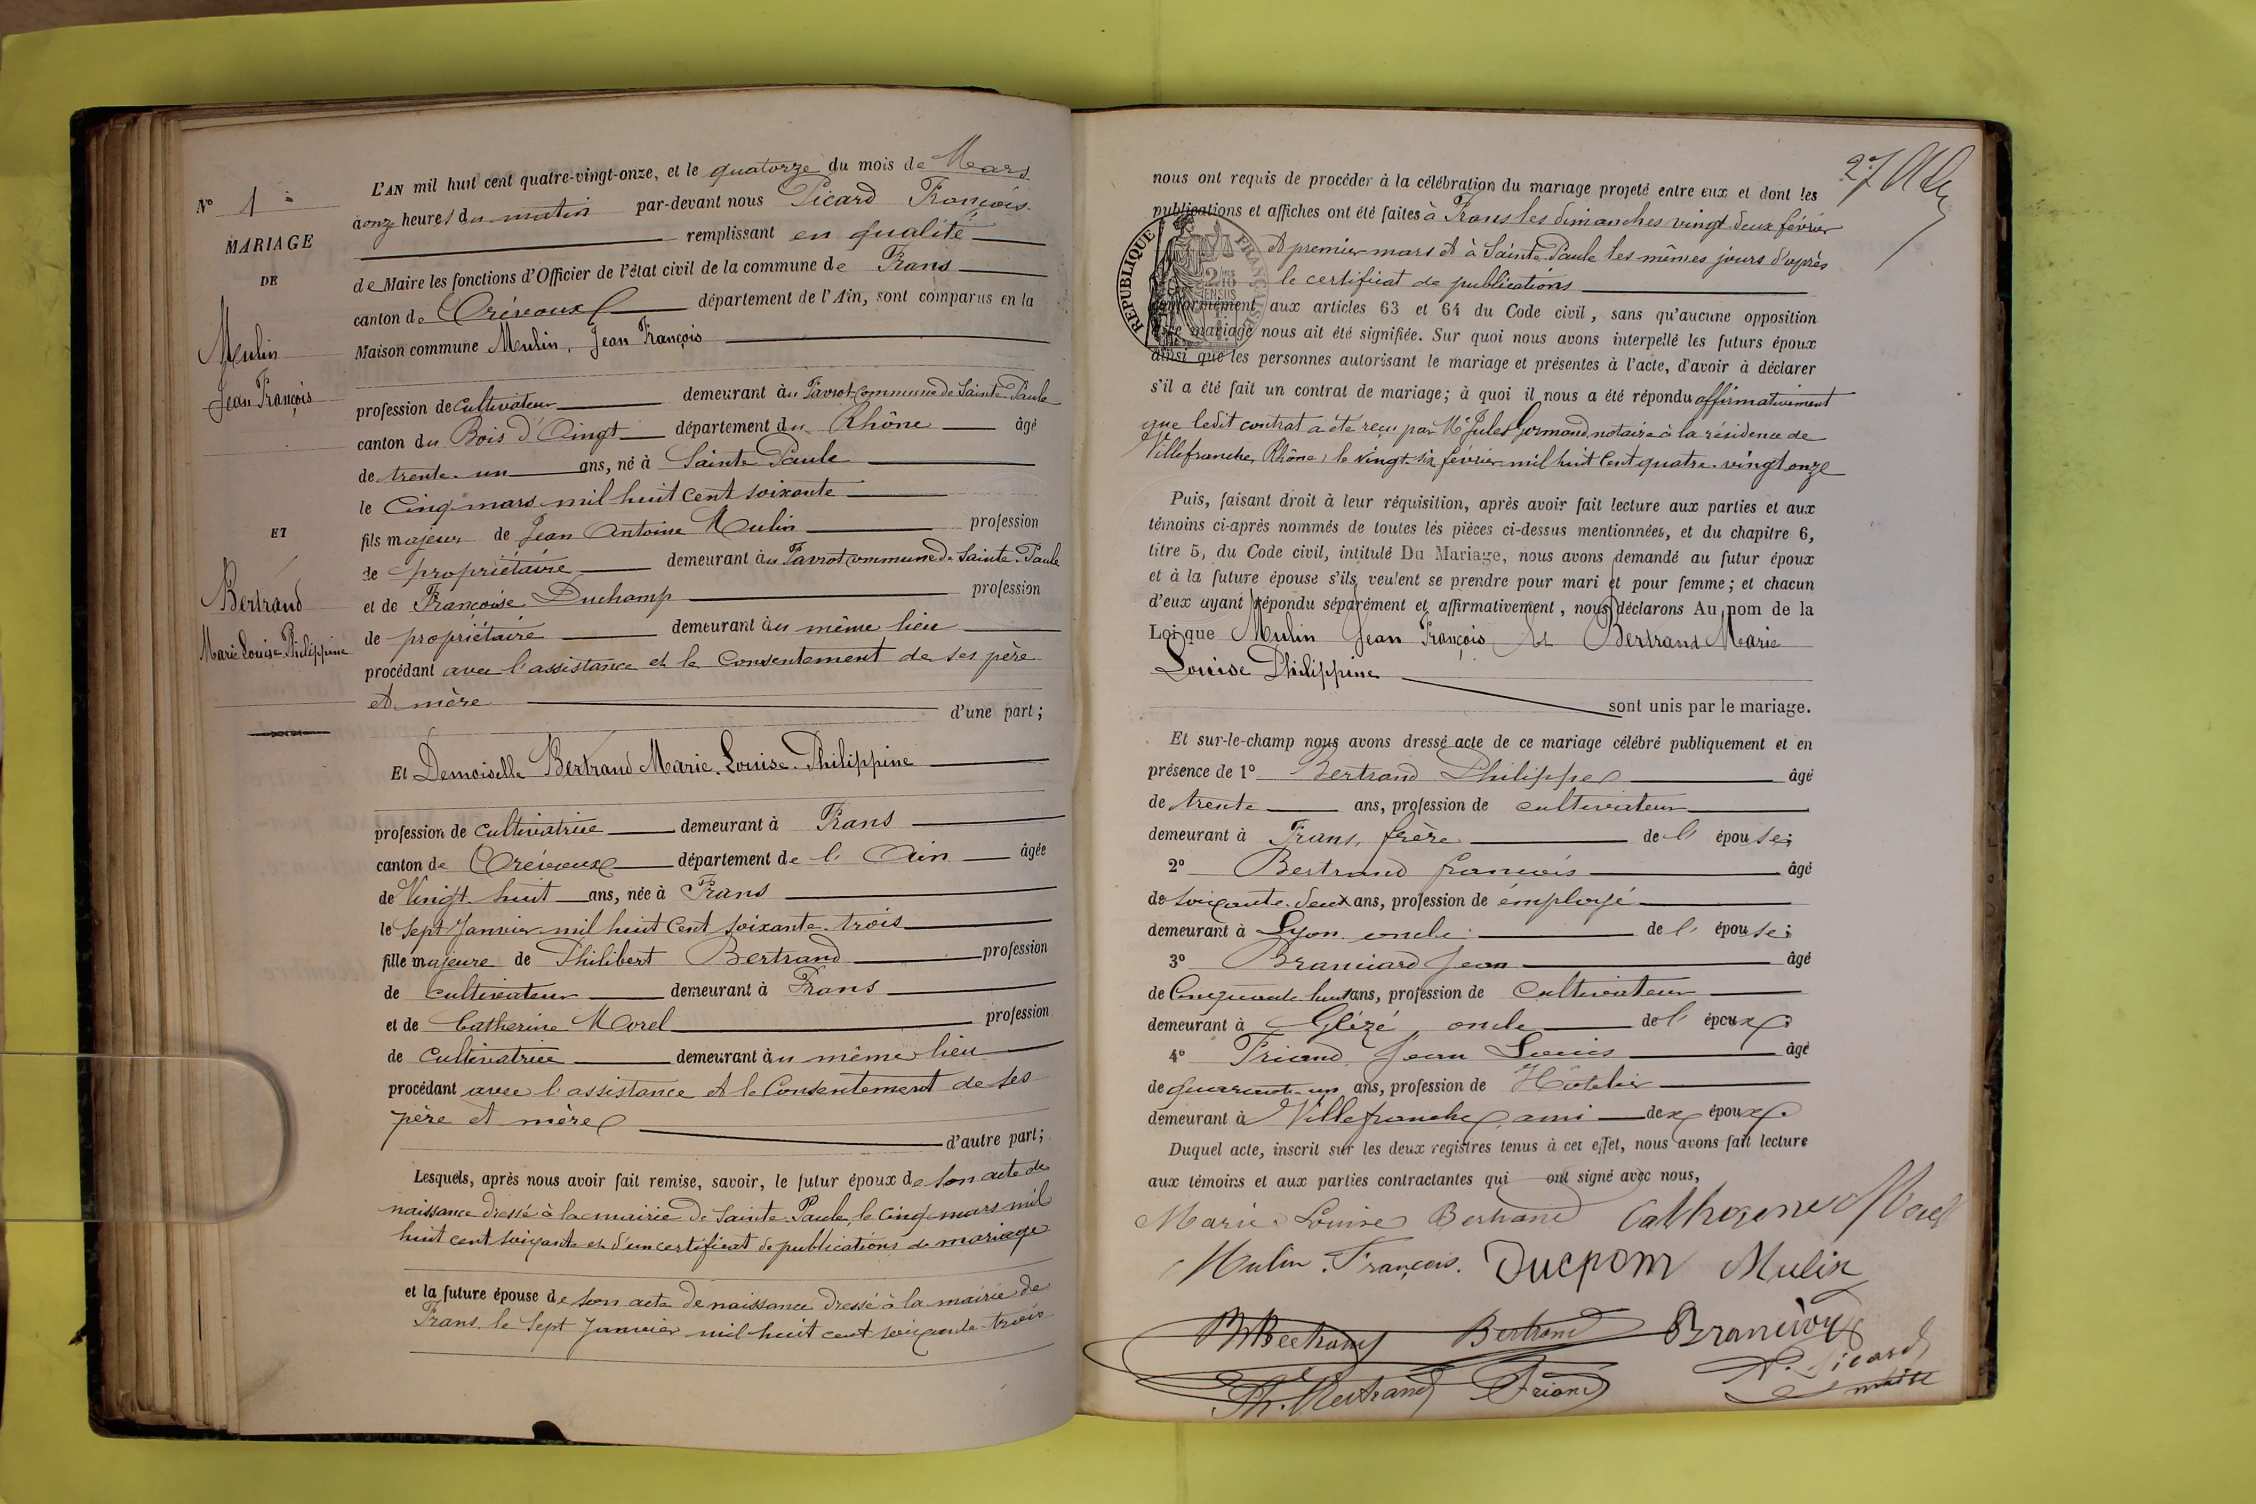 N° 1
MARIAGE
DE
Mulin
Jean François
ET
Bertrand
Marie Louise Philippine
L'AN mil huit cent quatre-vingt-onze, et le quatorze du mois de Mars
à onze heures du matin par-devant nous Picard François
remplissant en qualité
de Maire les fonctions d'Officier de l'état civil de la commune de Frans
canton de Trévoux département de l'Ain, sont comparus en la
Maison commune Mulin, Jean François
profession de Cultivateur demeurant au Favrot commune de Sainte Paule
canton du Bois d'Oingt département du Rhône âgé
de trente-un ans, né à Sainte Paule
le Cinq mars mil huit cent soixante
fils majeur de Jean Antoine Mulin profession
de propriétaire demeurant au Favrot commune de Sainte-Paule
et de Françoise Duchamp profession
de propriétaire demeurant au même lieu
procédant avec l'assistance et le Consentement de ses père
et mère d'une part;
Et Demoiselle Bertrand Marie-Louise-Philippine
profession de cultivatrice demeurant à Frans
canton de Trévoux département de l'Ain âgée
de Vingt-huit ans, née à Frans
le sept Janvier mil huit cent soixante-trois
fille majeure de Philibert Bertrand profession
de cultivateur demeurant à Frans
et de Catherine Morel profession
de cultivatrice demeurant au même lieu
procédant avec l'assistance et le Consentement de ses
père et mère d'autre part;
Lesquels, après nous avoir fait remise, savoir, le futur époux de son acte de
naissance dressé à la mairie de Sainte-Paule, le cinq mars mil
huit cent soixante et d'un certificat de publications de mariage
et la future épouse de son acte de naissance dressé à la mairie de
Frans le sept Janvier mil huit cent soixante-trois
27
nous ont requis de procéder à la célébration du mariage projeté entre eux et dont les
publications et affiches ont été faites à Frans les dimanches vingt-deux février
et premier mars et à Sainte-Paule les mêmes jours d'après
le certificat de publications
REPUBLIQUE FRANÇAISE
conformément aux articles 63 et 64 du Code civil, sans qu'aucune opposition
audit mariage nous ait été signifiée. Sur quoi nous avons interpellé les futurs époux
ainsi que les personnes autorisant le mariage et présentes à l'acte, d'avoir à déclarer
s'il a été fait un contrat de mariage; à quoi il nous a été répondu affirmativement
que ledit contrat a été reçu par Me Jules Germond notaire à la résidence de
Villefranche, Rhône, le vingt-six février mil huit cent quatre-vingt onze
Puis, faisant droit à leur réquisition, après avoir fait lecture aux parties et aux
témoins ci-après nommés de toutes les pièces ci-dessus mentionnées, et du chapitre 6,
titre 5, du Code civil, intitulé Du Mariage, nous avons demandé au futur époux
et à la future épouse s'ils veulent se prendre pour mari et pour femme; et chacun
d'eux ayant répondu séparément et affirmativement, nous déclarons Au nom de la
Loi que Mulin Jean François et Bertrand Marie
Louise Philippine
sont unis par le mariage.
Et sur-le-champ nous avons dressé acte de ce mariage célébré publiquement et en
présence de 1° Bertrand Philippe âgé
de trente ans, profession de cultivateur
demeurant à Frans, frère de l'épouse;
2° Bertrand françois âgé
de soixante-deux ans, profession de employé
demeurant à Lyon oncle de l'épouse;
3° Branciard Jean âgé
de Cinquante huit ans, profession de Cultivateur
demeurant à Gleizé, oncle de l'époux.
4° Friand Jean Louis âgé
de quarante-un ans, profession de Hôtelier
demeurant à Villefranche, ami des époux.
Duquel acte, inscrit sur les deux registres tenus à cet effet, nous avons fait lecture
aux témoins et aux parties contractantes qui ont signé avec nous,
Marie Louise Bertrand Catherine Morel
Mulin François. Mulin
Bertrand Bertrand
Ph. Bertrand Friand Picard
maire